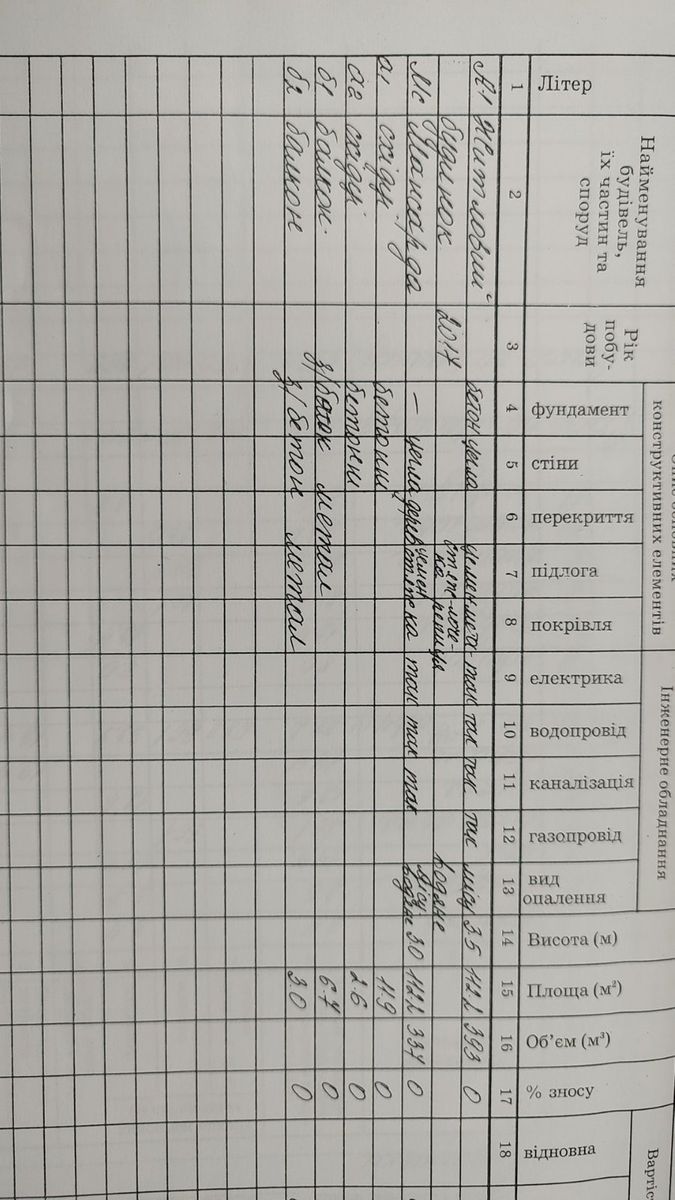 Опис основних
конструктивних елементів
Інженерне обладнання
Вартіс
Літер
Найменування
будівель,
їх частин та
споруд
Рік
побу-
дови
фундамент
стіни
перекриття
підлога
покрівля
електрика
водопровід
каналізація
газопровід
вид
опалення
Висота (м)
Площа (м²)
Об’єм (м³)
% зносу
відновна
1 2 3 4 5 6 7 8 9 10 11 12 13 14 15 16 17 18
А-1 Житловий бетон цегла так так так так місц 3.5 112.1 393 0
будинок 2017 водяне
Мс Мансарда — цегла дерев так так так місц водяне 3.0 112.1 337 0
а1 східці бетонні 11.9 0
а2 східці бетонні 2.6 0
б1 балкон з/бетон метал 6.7 0
б2 балкон з/бетон метал 3.0 0